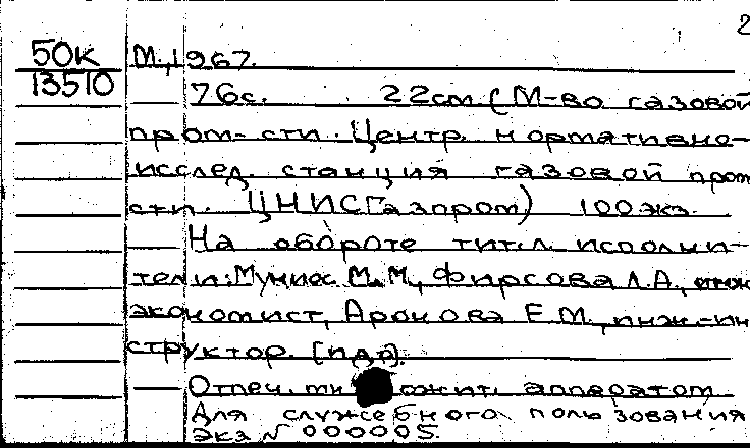 2
50К М., 1967.
13510
76с. 22см (М-во газовой
пром-сти. Центр. нормативно-
исслед. станция газовой пром
сти. ЦНИСГазпром) 100 экз.
На обороте тит. л. исполни-
тели: М. М., Фирсова Л.А., инж
экономист, Аронова Е.М., инж.-ин
структор. [и др].
Отпеч. аппаратом
Для служебного пользования
Экз N 000005.